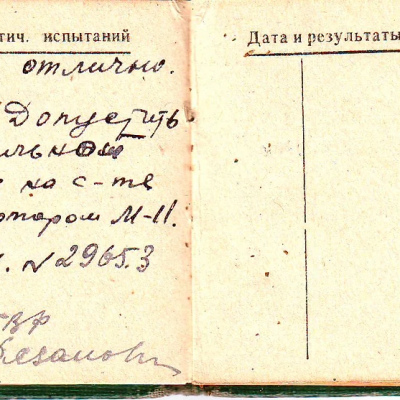 тич. испытаний
отлично.
Допустить
льной
на с-те
мотором М-11.
№ 29653
Дата и результаты